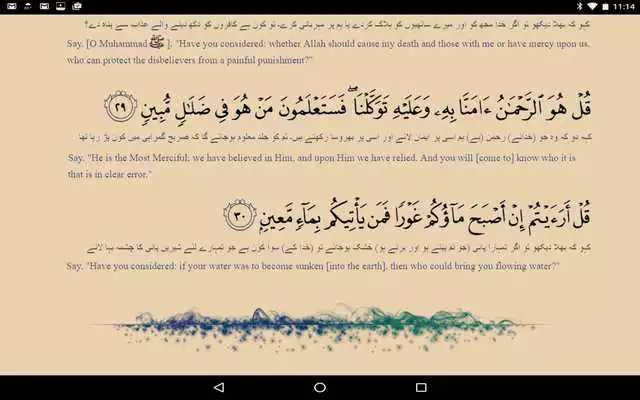 11:14
کہو کہ بھلا دیکھو تو اگر خدا مجھ کو اور میرے ساتھیوں کو ہلاک کردے یا ہم پر مہربانی کرے۔ تو کون ہے کافروں کو دکھ دینے والے عذاب سے پناہ دے؟
Say, [O Muhammad ﷺ], "Have you considered: whether Allah should cause my death and those with me or have mercy upon us,
who can protect the disbelievers from a painful punishment?"
قُلْ هُوَ ٱلرَّحْمَٰنُ ءَامَنَّا بِهِۦ وَعَلَيْهِ تَوَكَّلْنَا ۖ فَسَتَعْلَمُونَ مَنْ هُوَ فِى ضَلَٰلٍ مُّبِينٍ ٢٩
کہہ دو کہ وہ جو (خدائے) رحمٰن (ہے) ہم اسی پر ایمان لائے اور اسی پر بھروسا رکھتے ہیں۔ تم کو جلد معلوم ہوجائے گا کہ صریح گمراہی میں کون پڑ رہا تھا
Say, "He is the Most Merciful; we have believed in Him, and upon Him we have relied. And you will [come to] know who it is
that is in clear error."
قُلْ أَرَءَيْتُمْ إِنْ أَصْبَحَ مَآؤُكُمْ غَوْرًا فَمَن يَأْتِيكُم بِمَآءٍ مَّعِينٍۭ ٣٠
کہو کہ بھلا دیکھو تو اگر تمہارا پانی (جو تم پیتے ہو اور برتے ہو) خشک ہوجائے تو (خدا کے) سوا کون ہے جو تمہارے لئے شیریں پانی کا چشمہ بہا لائے
Say, "Have you considered: if your water was to become sunken [into the earth], then who could bring you flowing water?"